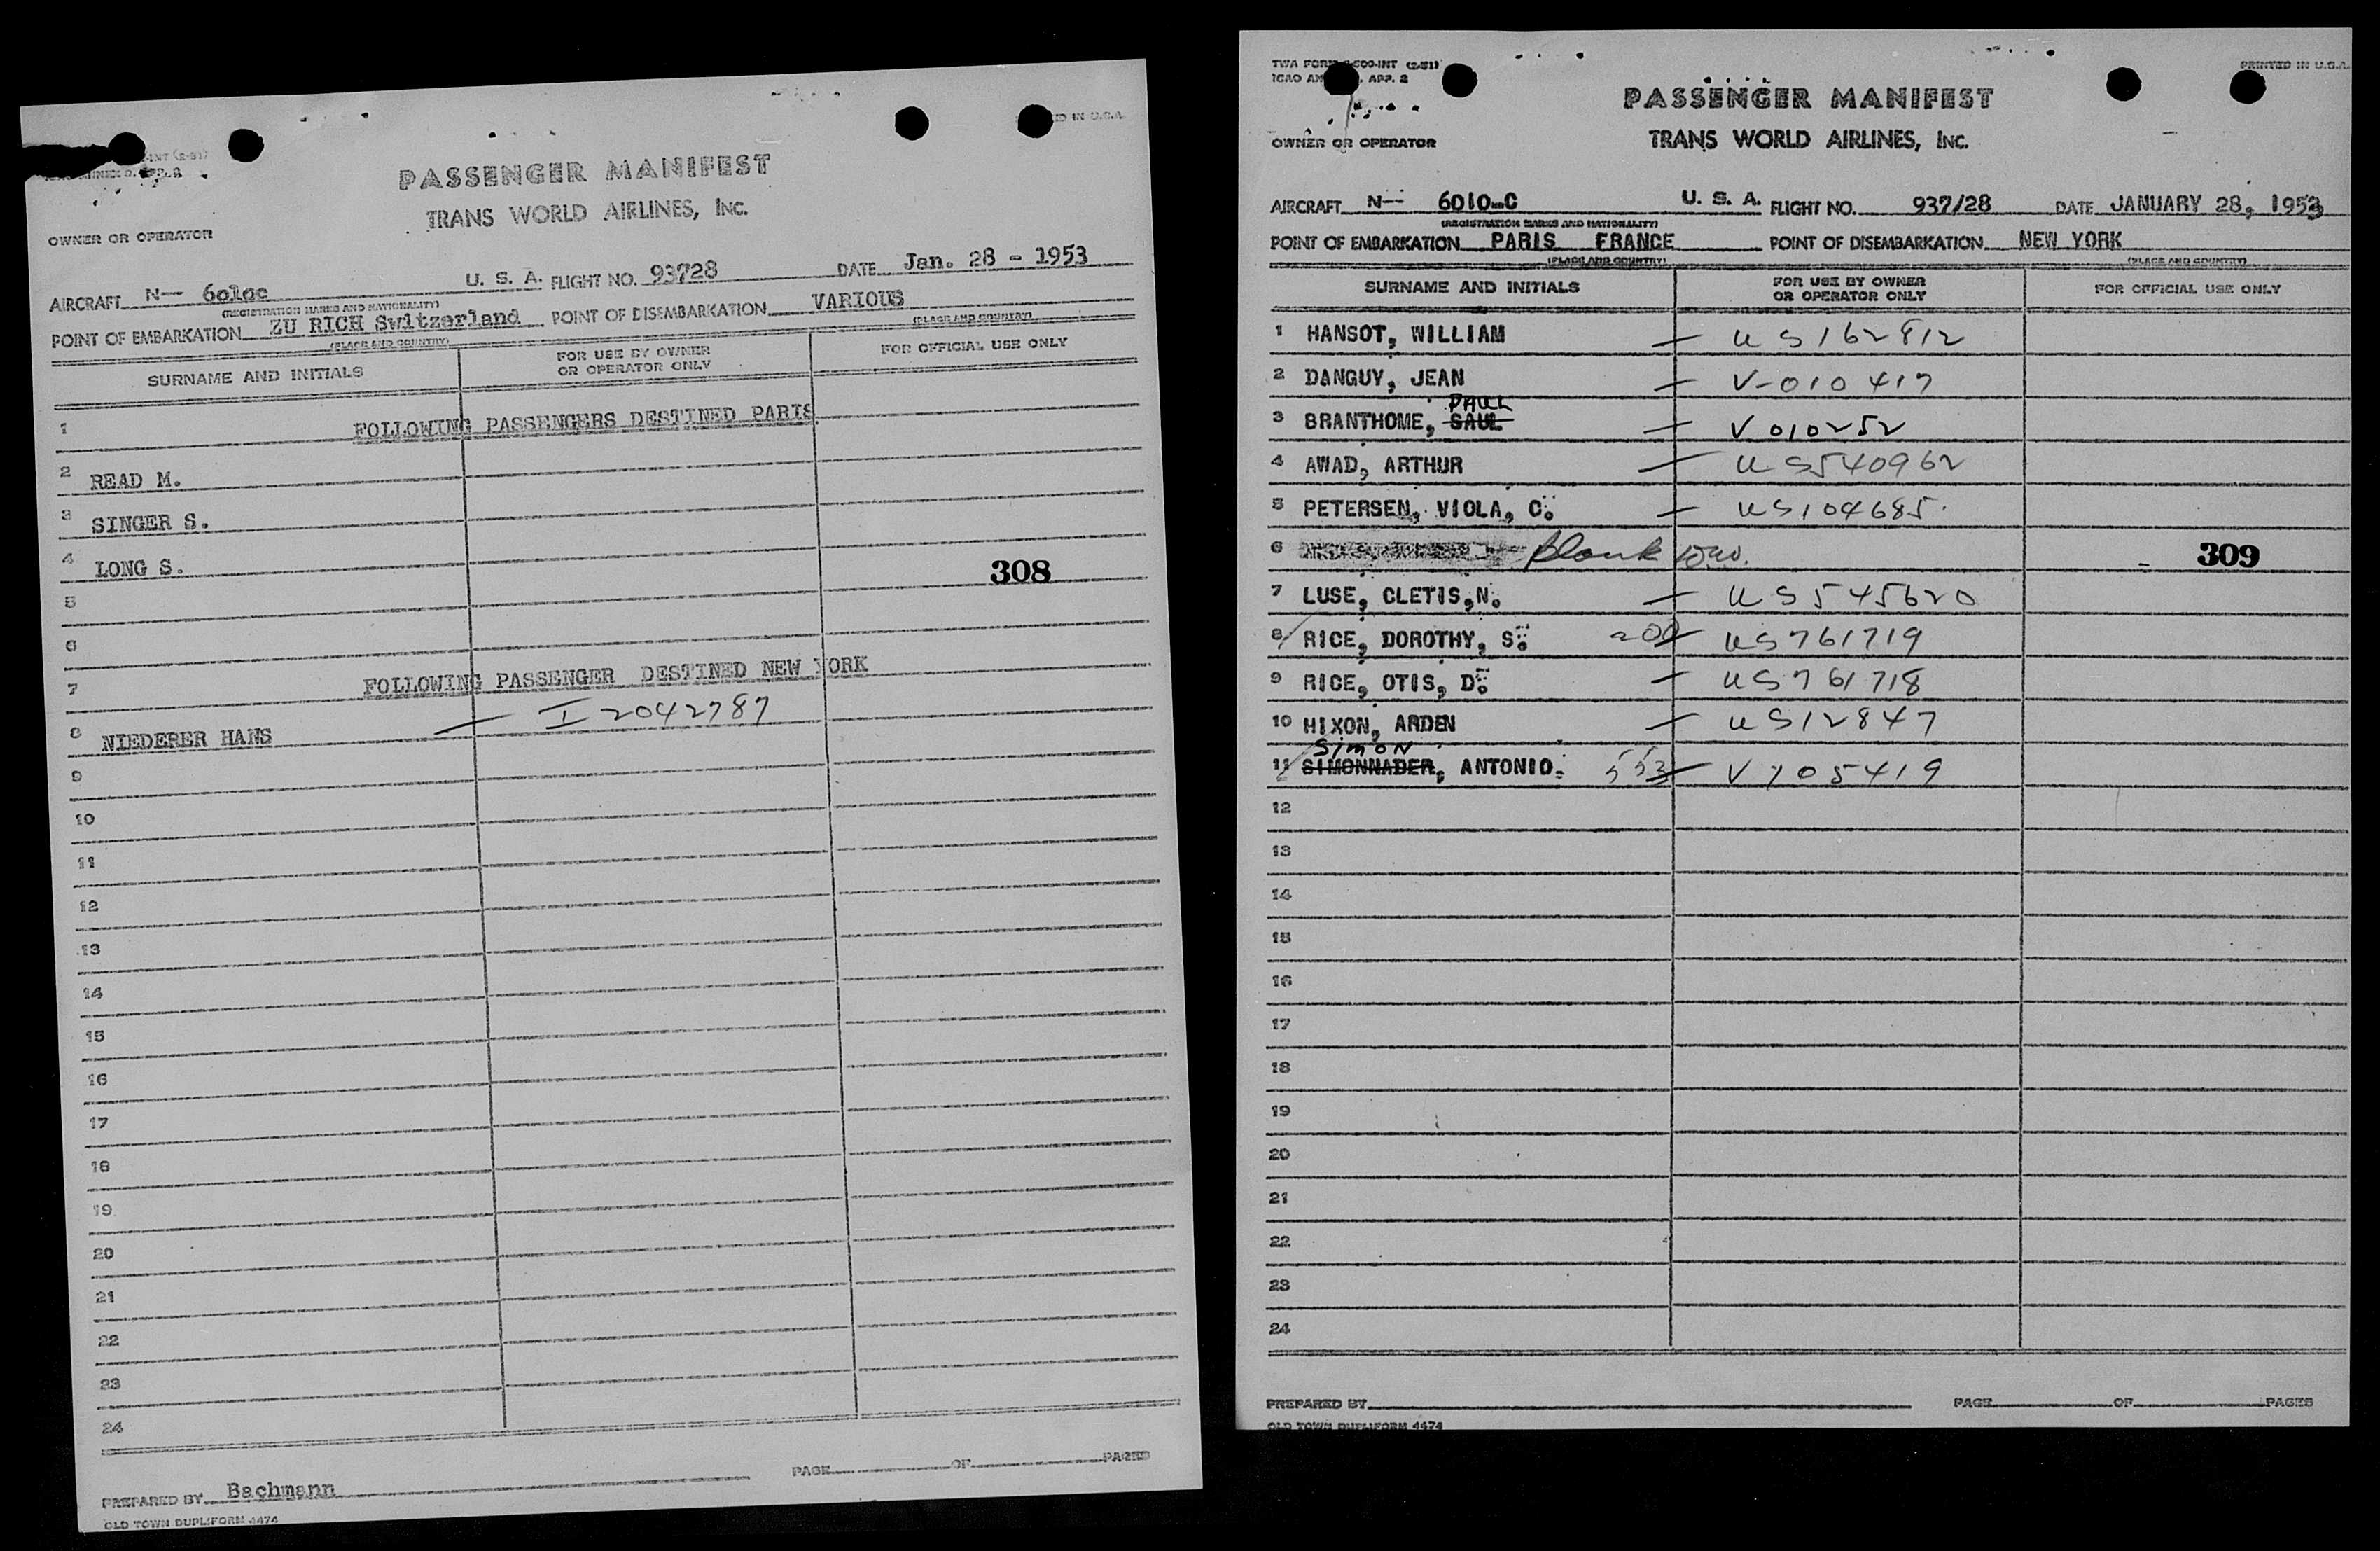 PASSENGER MANIFEST
TRANS WORLD AIRLINES, INC.
OWNER OR OPERATOR
AIRCRAFT N-- 6010c U. S. A. FLIGHT NO. 93728 DATE Jan. 28 - 1953
(REGISTRATION MARKS AND NATIONALITY)
POINT OF EMBARKATION ZU RICH Switzerland POINT OF DISEMBARKATION VARIOUS
(PLACE AND COUNTRY) (PLACE AND COUNTRY)
SURNAME AND INITIALS FOR USE BY OWNER OR OPERATOR ONLY FOR OFFICIAL USE ONLY
1 FOLLOWING PASSENGERS DESTINED PARIS
2 READ M.
3 SINGER S.
4 LONG S.
308
5
6
7 FOLLOWING PASSENGER DESTINED NEW YORK
8 NIEDERER HANS — I 2042787
9
10
11
12
13
14
15
16
17
18
19
20
21
22
23
24
PREPARED BY Bachmann PAGE OF PAGES
OLD TOWN DUPLIFORM 4474
TWA FORM
PRINTED IN U.S.A.
PASSENGER MANIFEST
TRANS WORLD AIRLINES, INC.
OWNER OR OPERATOR
AIRCRAFT N-- 6010-C U. S. A. FLIGHT NO. 937/28 DATE JANUARY 28, 1953
(REGISTRATION MARKS AND NATIONALITY)
POINT OF EMBARKATION PARIS FRANCE POINT OF DISEMBARKATION NEW YORK
(PLACE AND COUNTRY) (PLACE AND COUNTRY)
SURNAME AND INITIALS FOR USE BY OWNER OR OPERATOR ONLY FOR OFFICIAL USE ONLY
1 HANSOT, WILLIAM — US162812
2 DANGUY, JEAN — V-010417
PAUL
3 BRANTHOME, SAUL — V010252
4 AWAD, ARTHUR — US540962
5 PETERSEN, VIOLA, C. — US104685
6 Blank
309
7 LUSE, CLETIS, N. — US545620
8 RICE, DOROTHY, S. 200 — US761719
9 RICE, OTIS, D. — US761718
10 HIXON, ARDEN — US12847
SIMON
11 SIMONNADER, ANTONIO. 553 — V705419
12
13
14
15
16
17
18
19
20
21
22
23
24
PREPARED BY PAGE OF PAGES
OLD TOWN DUPLIFORM 4474